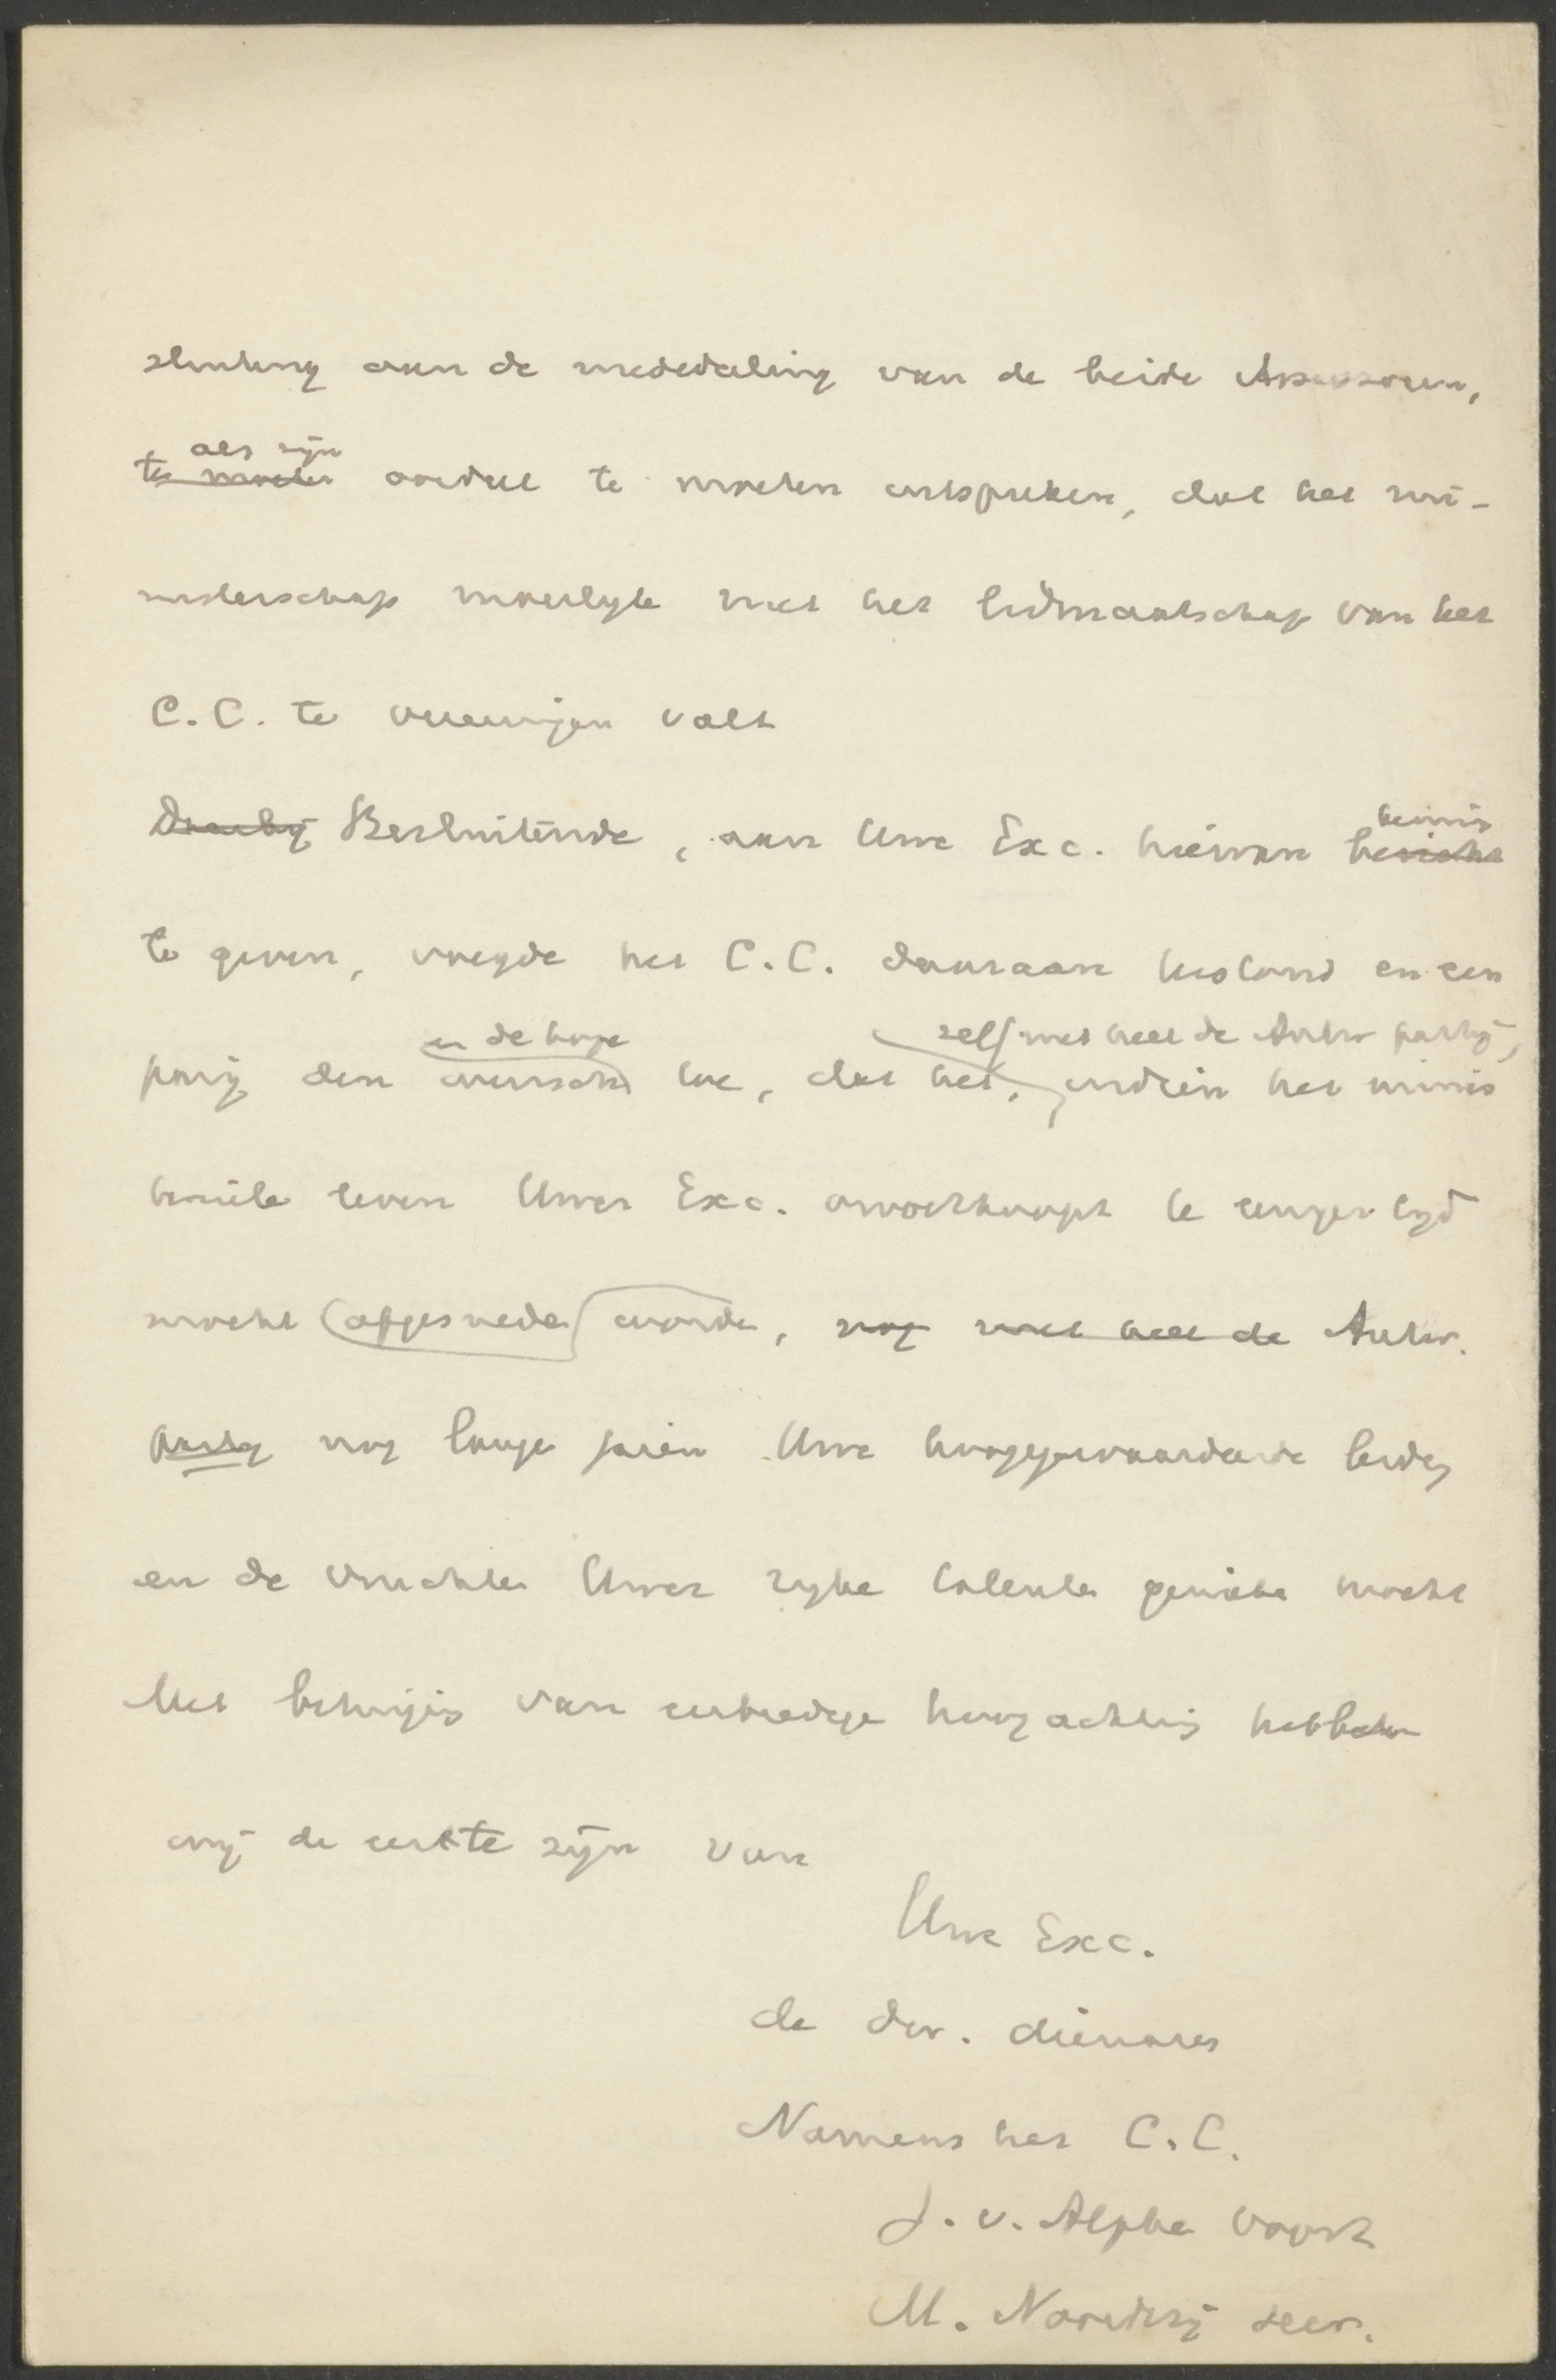 sluiting aan de mededeeling van de beide Assessoren,
als zijn
te moeten oordeel te moeten uitspreken, dat het mi-
nisterschap moeilyk met het lidmaatschap van het
C.C. te vereenigen valt
Daarbij Besluitende, aan Uwe Exc. hiervan bericht
kennis
te geven, voegde het C.C. daaraan terstond en een
en de hope zelf met heel de Antir. partij,
parig den wensch toe, dat het, indien het minis
terieele leven Uwer Exc. onverhoopt te eeniger tijd
mocht afgesneden worden, nog met heel de Antir.
partij nog lange jaren Uwe hooggewaardeerde leidg
en de vruchten Uwer rijke talenten genieten mocht
Met betuiging van eerbiedige hoogachting hebben
wij de eer te zijn van
Uwe Exc.
de dw. dienaren
Namens het C.C.
J. v. Alphen voorz.
M. Noordtzij secr.